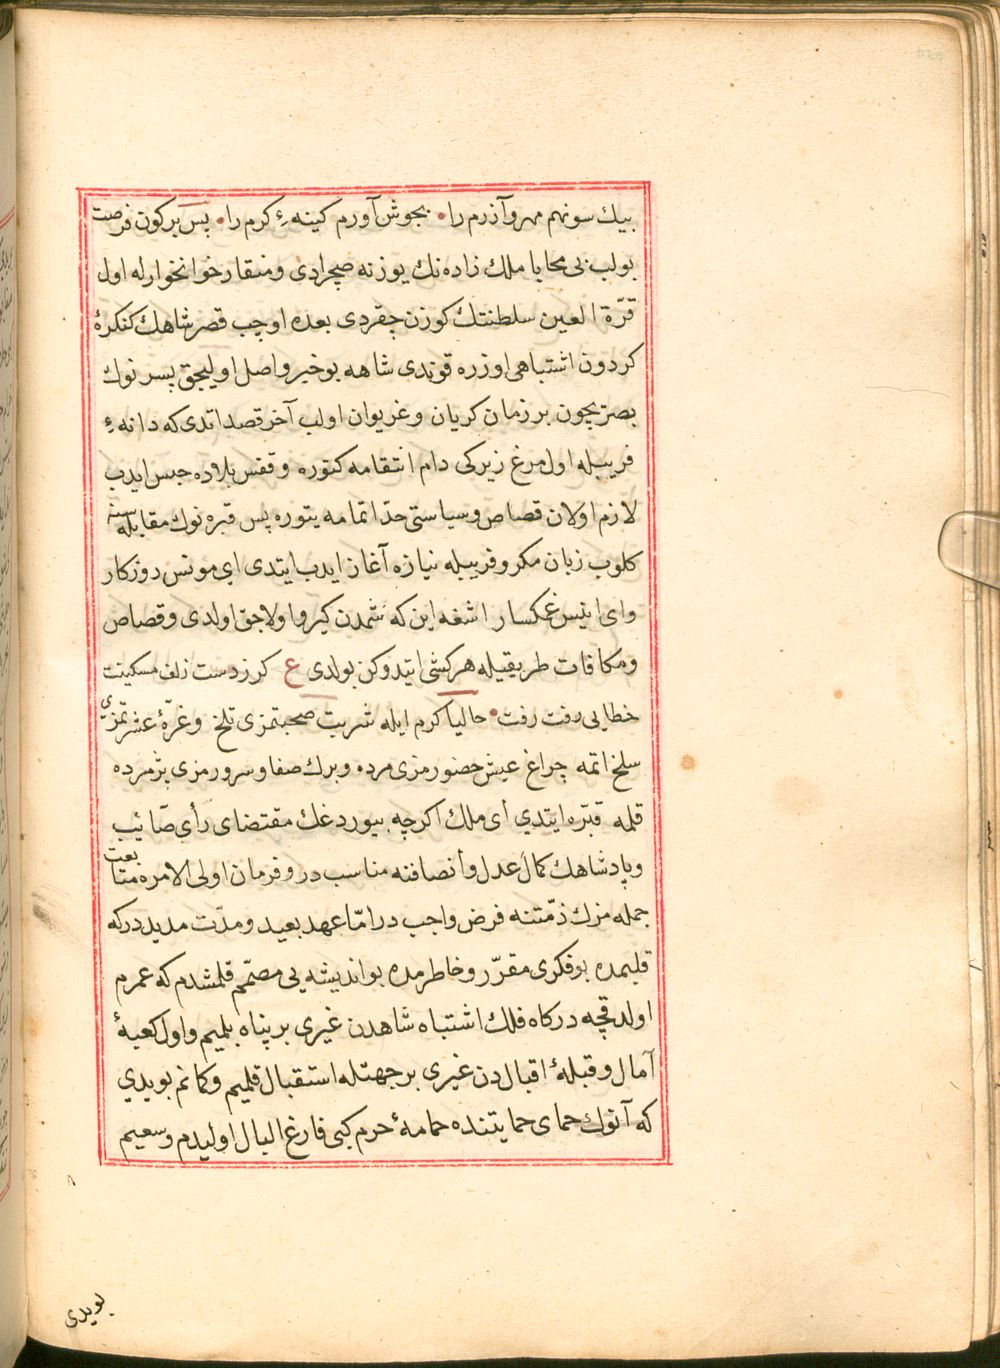 بيك سونهم مهر و آزرم را • بجوش آورم كينهٔ كرم را • پس بركون فرصت
بولب بى محابا ملك زاده نك يوزنه صچرادى و منقار خوانخوارله اول
قرّة العين سلطنتك كوزن چقردى بعده اوچب قصر شاهك كنكرهٔ
كردون اشتباهى اوزره قوندى شاهه بو خبر واصل اوليجق پسر نوك
بصر يچون بر زمان كريان و غريوان اولب آخر قصد اتدى كه دانهٔ
فريبيله اول مرغ زيركى دام انتقامه كتوره و قفس بلاده حبس ايدب
لازم اولان قصاص و سياستى حدّ اتمامه يتوره پس قبره نوك مقابله سنه
كلوب زبان مكر و فريبيله نيازه آغاز ايدب ايتدى اى مونس روزكار
واى انيس غمكسار اشغه اين كه شمدن كيرو اولاجق اولدى و قصاص
و مكافات طريقيله هر كشى ايتدوكن بولدى ع كر ز دست زلف مسكينت
خطايى رفت رفت • حاليا كرم ايله شربت صحبتمزى تلخ و غرّهٔ عشرتمزى
سلخ اتمه چراغ عيش حضورمزى مرده و برك صفا و سرورمزى پژمرده
قلمه قبّره ايتدي أى ملك اكرچه بيوردغك مقتضاى رأي صائب
و پادشاهك كمال عدل و أنصافنه مناسب در و فرمان اولى الامره متابعت
جمله مزك ذمّتنه فرض واجب در امّا عهد بعيد و مدّت مديد در كه
قلبمده بو فكرى مقرّر و خاطرمده بو انديشه يى مصمّم قلمشدم كه عمرم
اولدقچه دركاه فلك اشتباه شاهدن غيرى بر پناه بلميم و اول كعبهٔ
آمال و قبلهٔ اقبال دن غيرى بر جهتله استقبال قلميم و كمانم بويدي
كه آنوك حماى حمايتنده حمامهٔ حرم كبى فارغ البال اوليدم و سعيم
بويدى